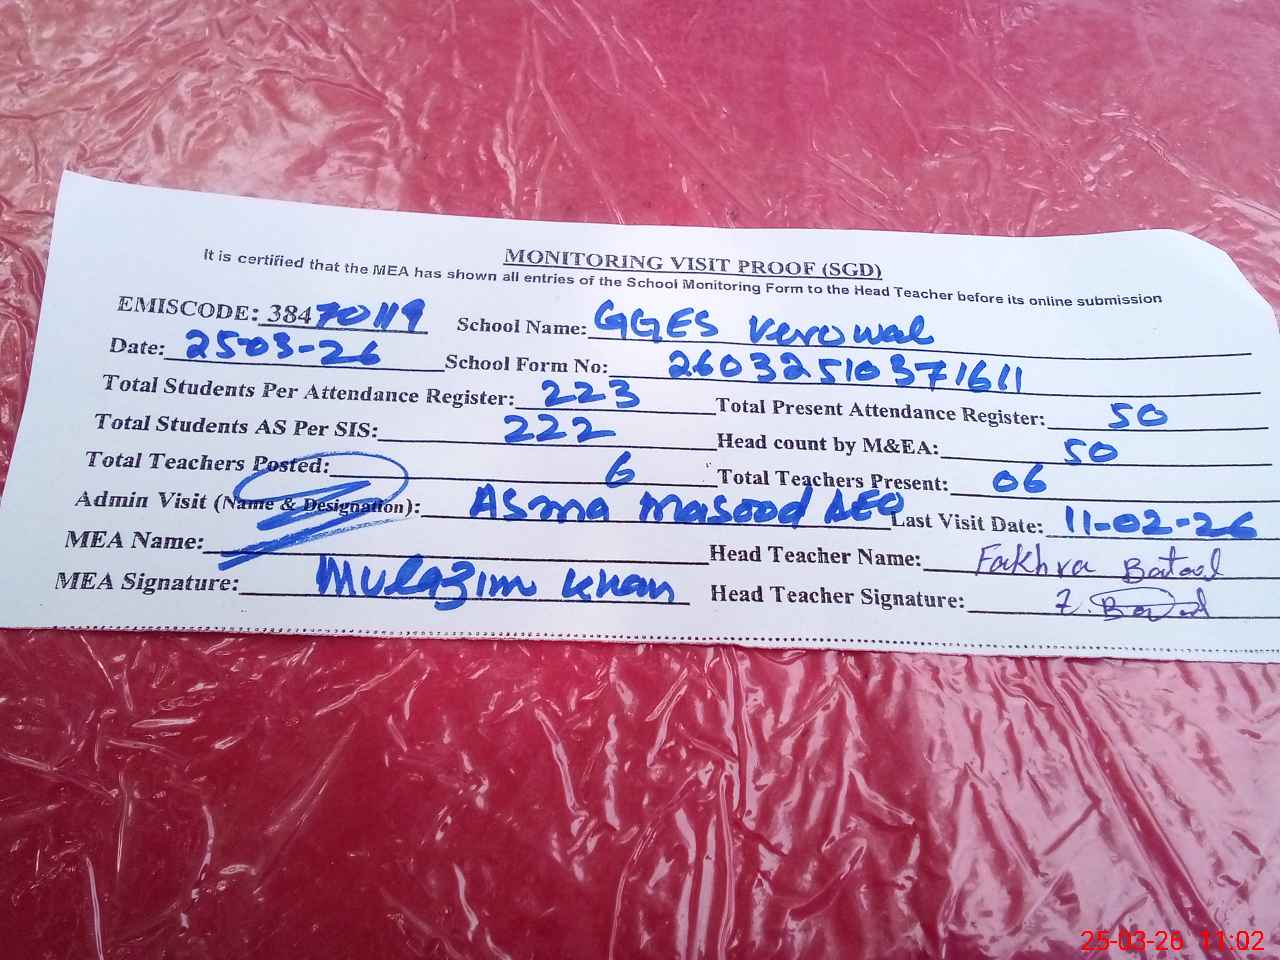 MONITORING VISIT PROOF (SGD)
It is certified that the MEA has shown all entries of the School Monitoring Form to the Head Teacher before its online submission
EMISCODE: 38470119 School Name: GGES Verowal
Date: 25-03-26 School Form No: 26032510371611
Total Students Per Attendance Register: 223 Total Present Attendance Register: 50
Total Students AS Per SIS: 222 Head count by M&EA: 50
Total Teachers Posted: 6 Total Teachers Present: 06
Admin Visit (Name & Designation): Asma Masood AEO Last Visit Date: 11-02-26
MEA Name: Head Teacher Name: Fakhra Batool
MEA Signature: Mulazim Khan Head Teacher Signature: F. Batool
25-03-26 11:02